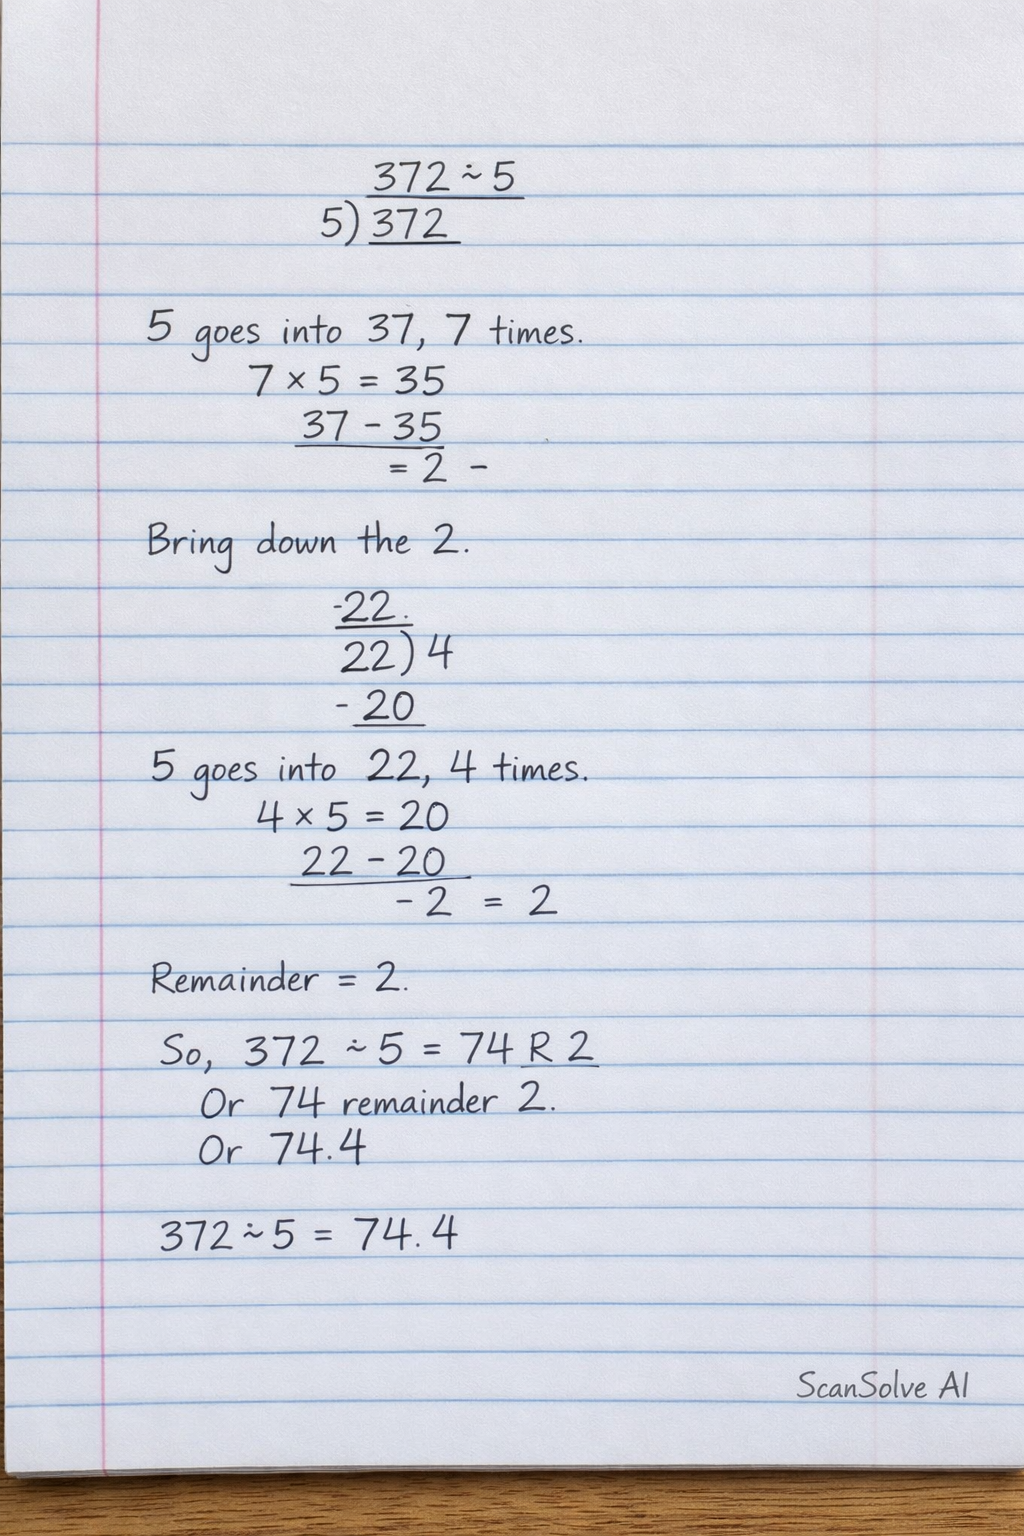 372 ÷ 5
5) 372
5 goes into 37, 7 times.
7 × 5 = 35
37 - 35
= 2 -
Bring down the 2.
-22.
22) 4
- 20
5 goes into 22, 4 times.
4 × 5 = 20
22 - 20
- 2 = 2
Remainder = 2.
So, 372 ÷ 5 = 74 R 2
Or 74 remainder 2.
Or 74.4
372 ÷ 5 = 74.4
ScanSolve AI